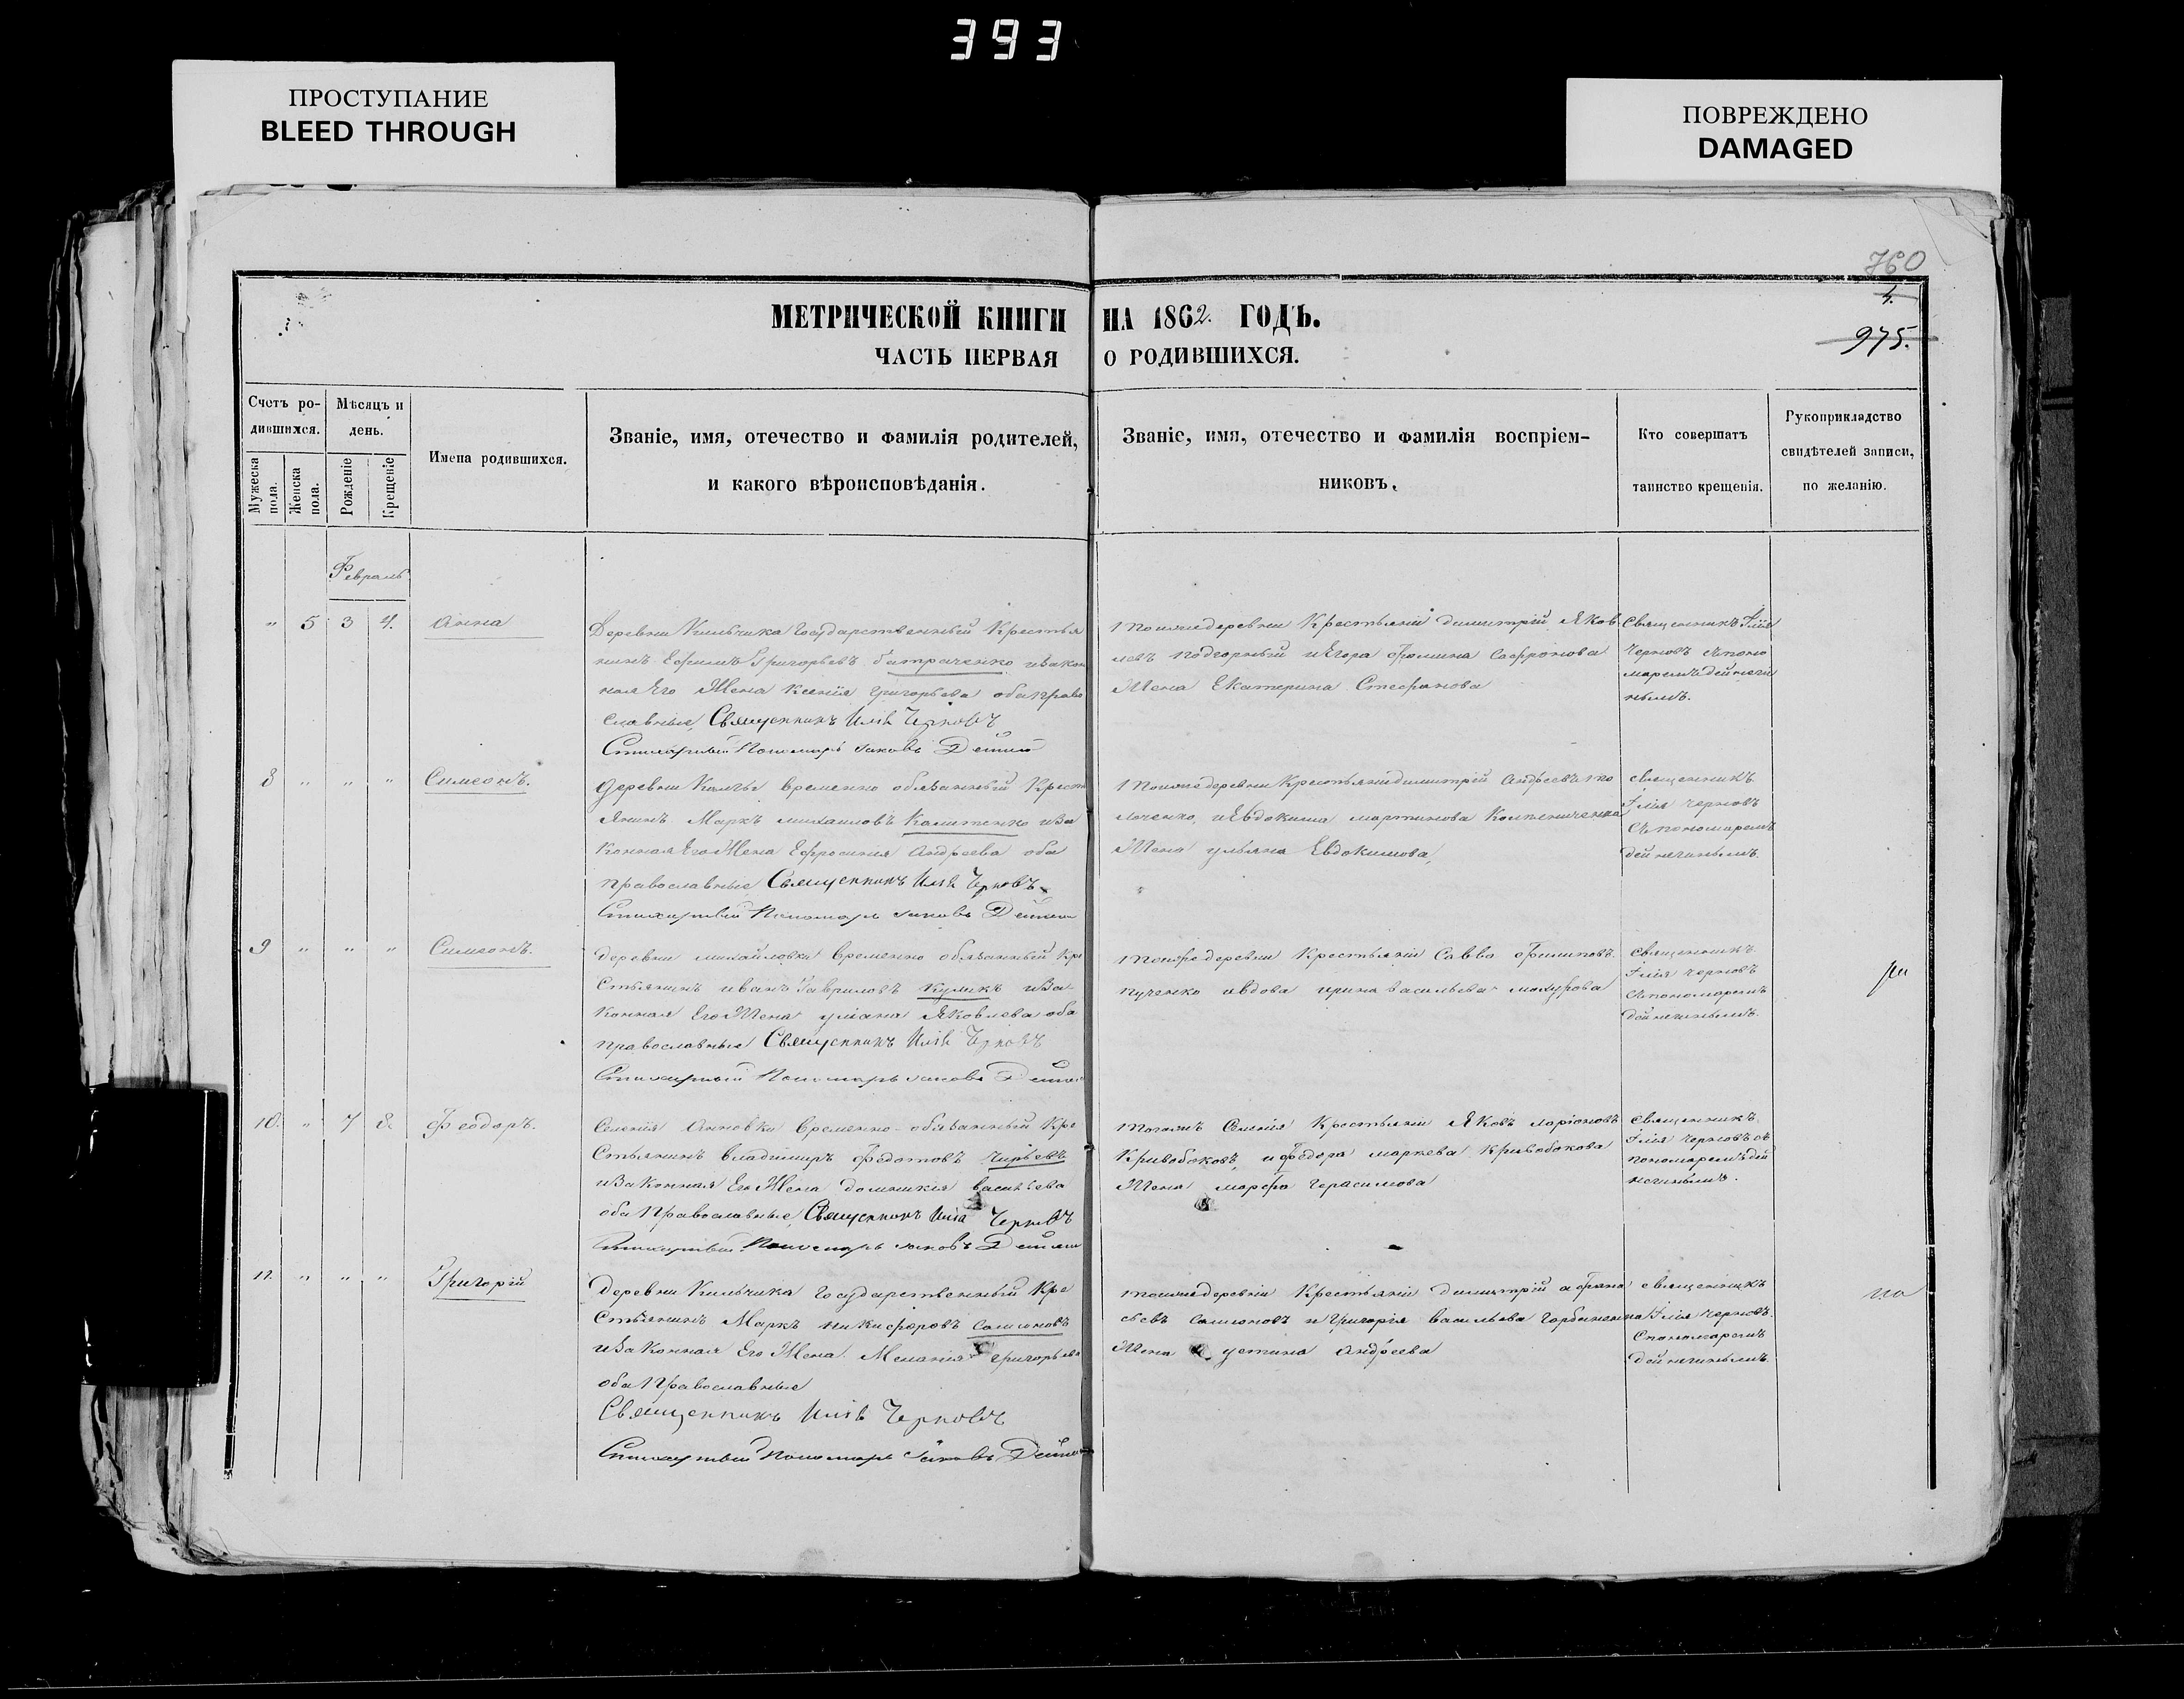 393
ПРОСТУПАНИЕ
BLEED THROUGH
ПОВРЕЖДЕНО
DAMAGED
760
4.
975.
МЕТРИЧЕСКОЙ КНИГИ НА 1862. ГОДЪ.
ЧАСТЬ ПЕРВАЯ О РОДИВШИХСЯ.
Счетъ ро-
дившихся.
Мужеска пола.
Женска пола.
Мѣсяцъ и
день.
Рожденіе
Крещеніе
Имена родившихся.
Званіе, имя, отечество и фамилія родителей,
и какого вѣроисповѣданія.
Званіе, имя, отечество и фамилія воспріем-
никовъ.
Кто совершатъ
таинство крещенія.
Рукоприкладство
свидѣтелей записи,
по желанію.
Февраль
" 5 3 4. Анна
Деревни Кильчика Государственный Крестья
нинъ Ефимъ Григорьевъ батраченко изакон
ная Его Жена Ксенія григорьева обаправо
славные, Священникъ Илія Черновъ
Стихарный Пономарь Іаковъ
тойже деревни Крестьяне димитрій Яков
левъ подгорный иЕгора Фомина Сафронова
Жена Екатерина Стефанова
Священникъ Илія
Черновъ спопо
8 " " " Симеонъ.
деревни временно обязанный Кресть
янинъ Маркъ михаиловъ Калитенко иза
конная Его Жена Ефросинія Андреева оба
православные, Священникъ Илія Черновъ
Стихарный Пономарь Іаковъ
тойже деревни Крестьяне димитрій Андреевъ
иЕвдокима мартинова
Жена ульяна Евдокимова,
священникъ
Илія Черновъ
спономаремъ
9 " " " Симеонъ.
деревни михайловки временно обязанный Кре
стьянинъ иванъ Гавриловъ Куликъ иза
конная Его Жена уліана Яковлева оба
православные Священникъ Илія Черновъ
Стихарный Пономарь Іаковъ
тойже деревни Крестьяне Савва Филиповъ
ивдова ирина васильева
священникъ
Илія Черновъ
спономаремъ
10. " 7 8. Феодоръ.
Селенія Анновки временно-обязанный Кре
стьянинъ владимиръ Федотовъ Чирьевъ
изаконная Его Жена домникія васильева
оба Православные, Священникъ Илія Черновъ
Стихарный Пономарь Іаковъ
тогожъ Селенія Крестьяне Яковъ ларіоновъ
Кривобоковъ, иФедора маркева Кривобокова
Жена марфа герасимова
священникъ
Илія Черновъ съ
пономаремъ дей
11. " " " Григорій
деревни Кильчика Государственный Кре
стьянинъ Маркъ никифоровъ Салимовъ
изаконная Его Жена. Меланія григорьева
оба Православные
Священникъ Илія Черновъ
Стихарный Пономарь Іаковъ
тойже деревни Крестьяне димитрій афана
сьевъ Салимовъ и Григорія васильева горбаненка
Жена устина Андреева
священникъ
Илія Черновъ.
Спономаремъ